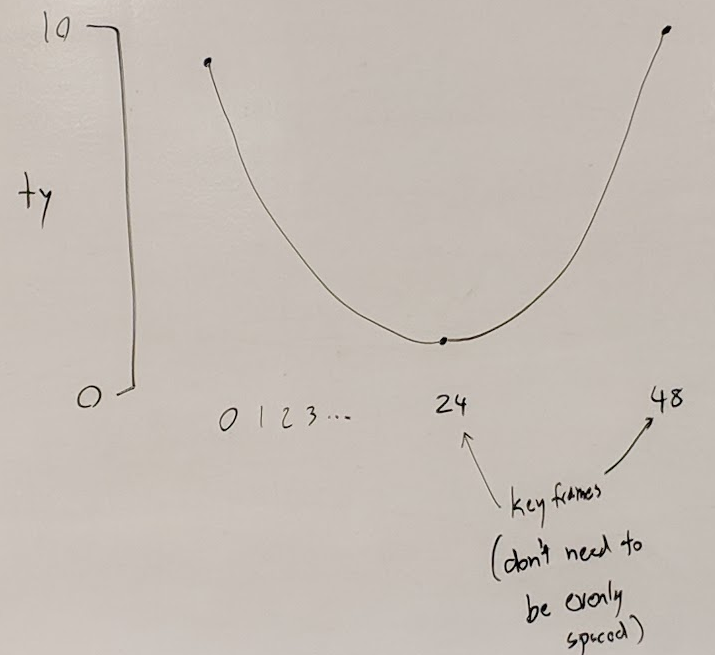 10
ty
0
0 1 2 3 ...
24
48
key frames
(don't need to
be evenly
spaced)